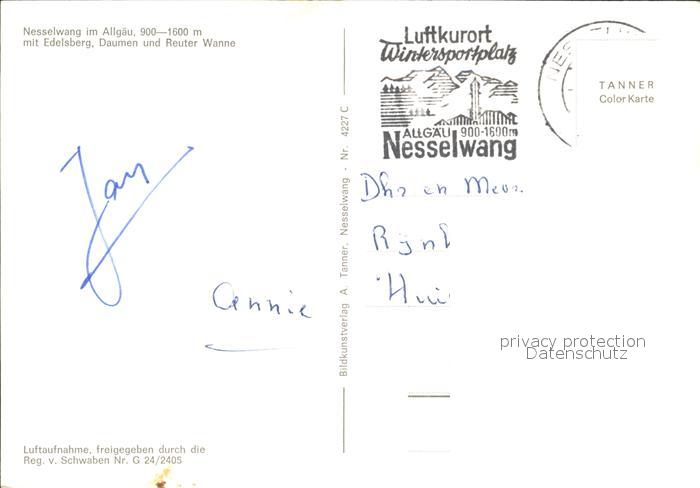 Nesselwang im Allgäu, 900—1600 m
mit Edelsberg, Daumen und Reuter Wanne
Luftkurort
Wintersportplatz
ALLGÄU 900-1600m
Nesselwang
TANNER
Color Karte
Bildkunstverlag A. Tanner, Nesselwang - Nr. 4227 C
Dhr en Mevr.
Annie
privacy protection
Datenschutz
Luftaufnahme, freigegeben durch die
Reg. v. Schwaben Nr. G 24/2405